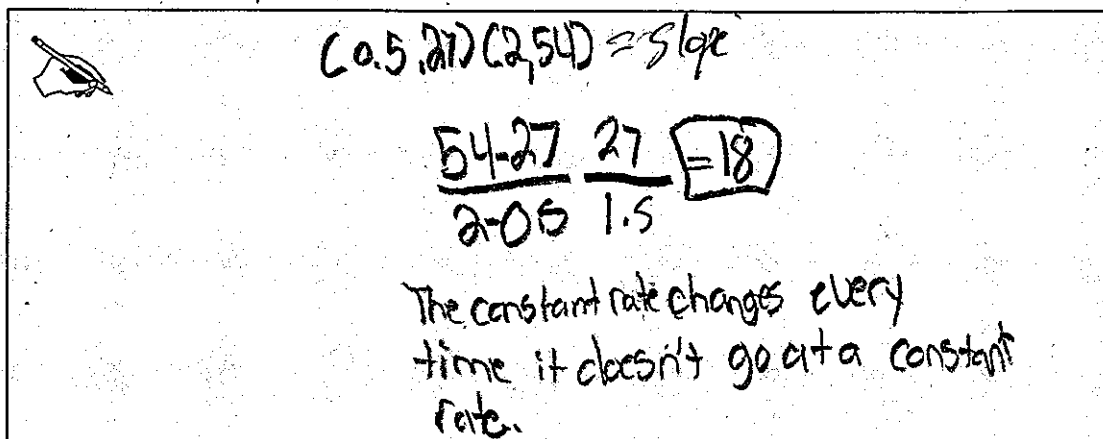 (0.5,27)(2,54) = slope
54-27 27 =18
2-0.5 1.5
The constant rate changes every
time it doesn't go at a constant
rate.